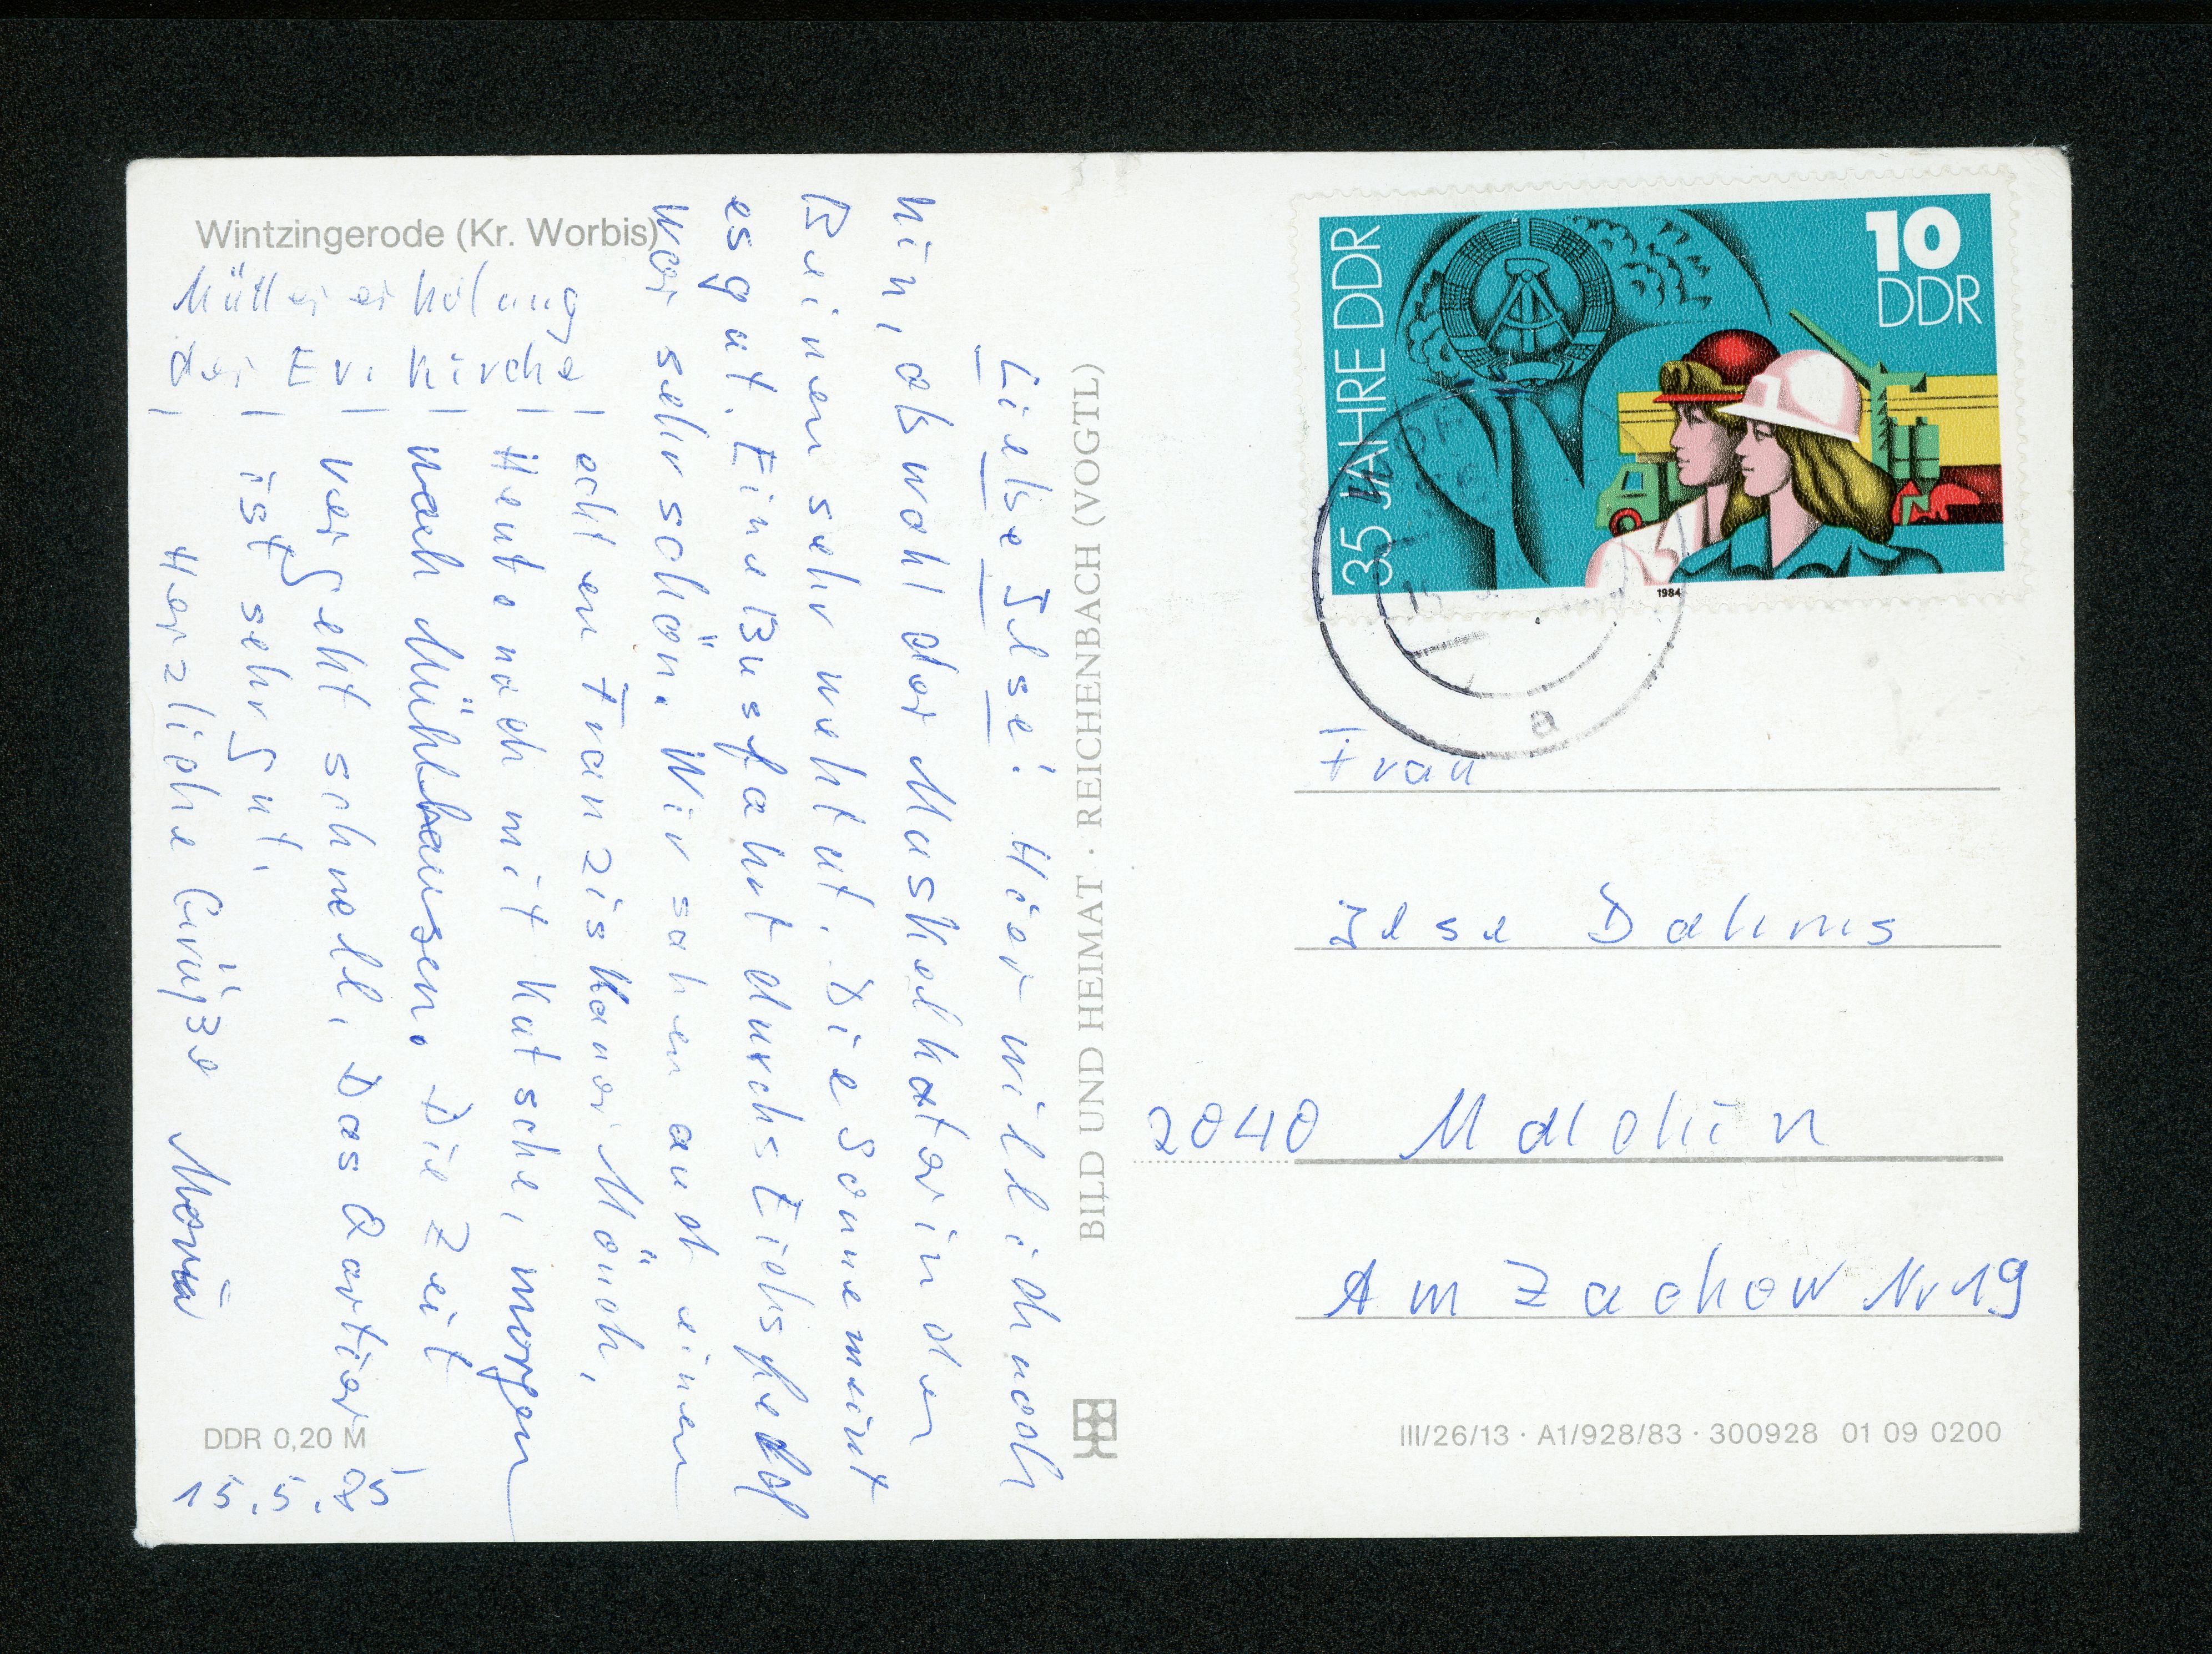 Wintzingerode (Kr. Worbis)
Müttererholung
der Ev. Kirche
Liebe Ilse! Hier will ich noch
hin, obwohl der Muskelkater in den
Beinen sehr weh tut. Die Sonne meint
es gut. Eine Busfahrt durchs Eichsfeld
war sehr schön. Wir sahen auch einen
echten Franziskaner Mönch,
Heute noch mit Kutsche, morgen
nach Mühlhausen. Die Zeit
vergeht schnell. Das Qartier
ist sehr gut.
Herzliche Grüße Maria
DDR 0,20 M
15.5.85
BILD UND HEIMAT · REICHENBACH (VOGTL)
35 JAHRE DDR
10
DDR
1984
a
Frau
Ilse Dahms
2040 Malchin
Am Zachow Nr 19
III/26/13 · A1/928/83 · 300928 01 09 0200